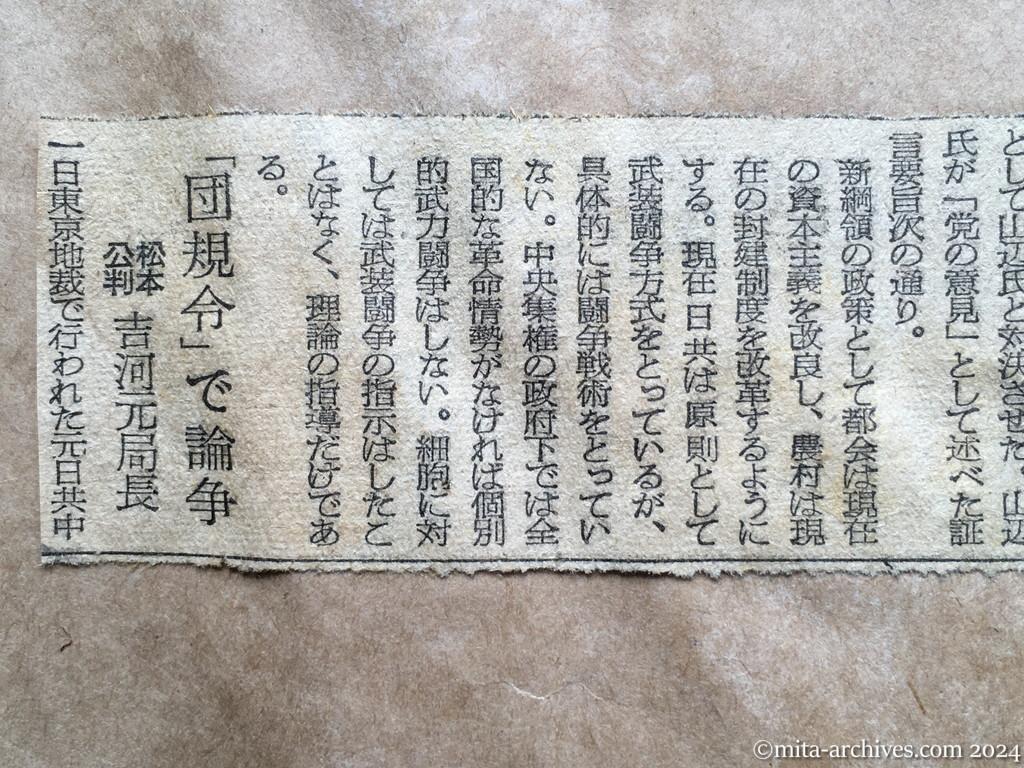 として山辺氏と対決させた。山辺
氏が「党の意見」として述べた証
言要旨次の通り。
新綱領の政策として都会は現在
の資本主義を改良し、農村は現
在の封建制度を改革するように
する。現在日共は原則として
武装闘争方式をとっているが、
具体的には闘争戦術をとってい
ない。中央集権の政府下では全
国的な革命情勢がなければ個別
的武力闘争はしない。細胞に対
しては武装闘争の指示はしたこ
とはなく、理論の指導だけであ
る。
「団規令」で論争
松本公判 吉河元局長
一日東京地裁で行われた元日共中
©mita-archives.com 2024